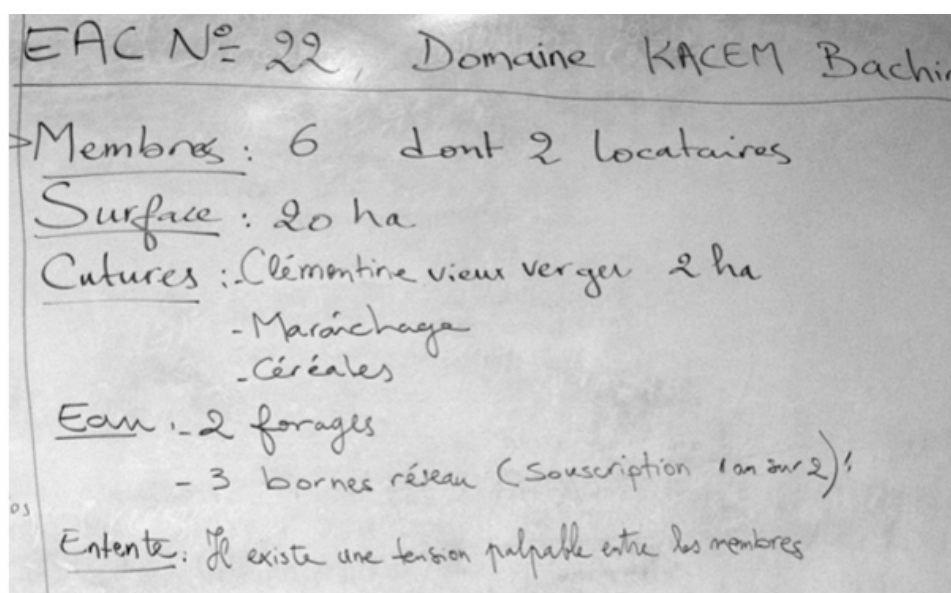 EAC N° 22, Domaine KACEM Bachir
Membres : 6 dont 2 locataires
Surface : 20 ha
Cutures : - Clémentine vieux verger 2 ha
- Maraîchage
- Céréales
Eau : - 2 forages
- 3 bornes réseau (Souscription 1 an sur 2)!
os
Entente : Il existe une tension palpable entre les membres